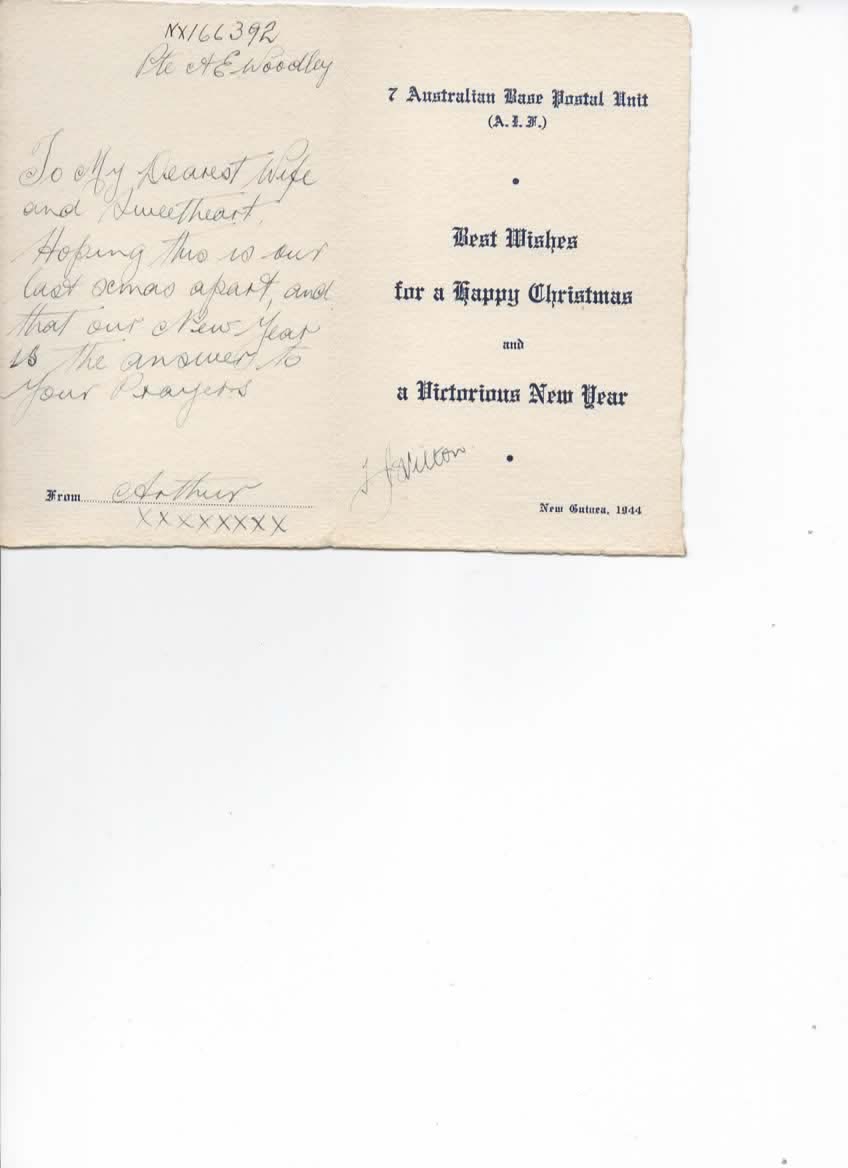 NX166392
Pte A E Woodley
To My Dearest Wife
and Sweetheart,
Hoping this is our
last xmas apart, and
that our New Year
is the answer to
Your Prayers
From Arthur
XXXXXXXX
7 Australian Base Postal Unit
(A.I.F.)
•
Best Wishes
for a Happy Christmas
and
a Victorious New Year
•
New Guinea, 1944